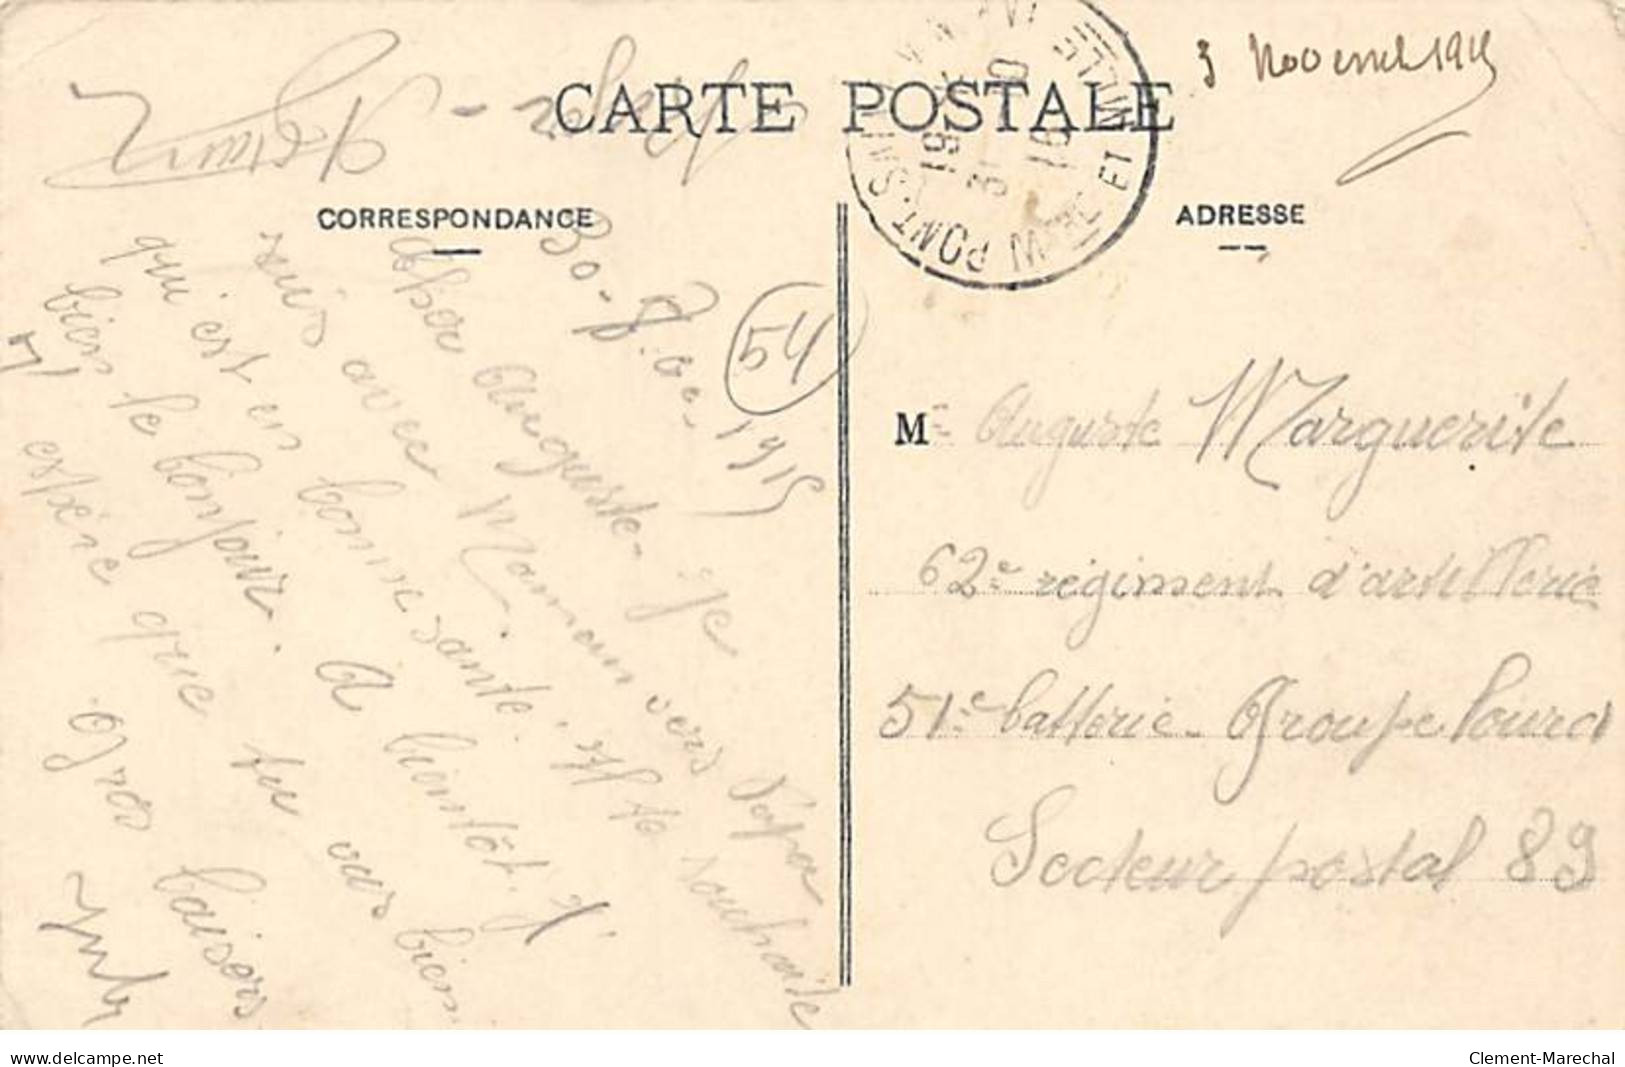 CARTE POSTALE
3 Novembre 1915
CORRESPONDANCE
ADRESSE
PONT-S
MEURTHE ET M
19
31 10
15
54
30-8bre 1915
Cher Auguste - Je
suis avec Maman vers Papa
qui est en bonne santé. Il te souhaite
bien le bonjour. A bientôt. J'
espère que tu vas bien
Gros baisers
Me Auguste Marguerite
62e régiment d'artillerie
51e batterie - Groupe lourd
Secteur postal 89
www.delcampe.net
Clement-Marechal